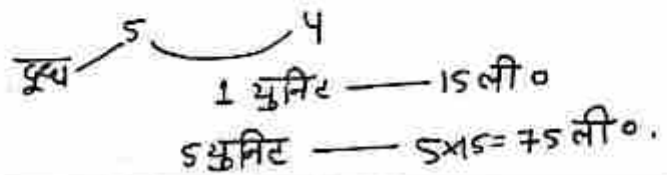 5 4
दूध
1 युनिट —— 15 ली०
5 युनिट —— 5×15 = 75 ली०.